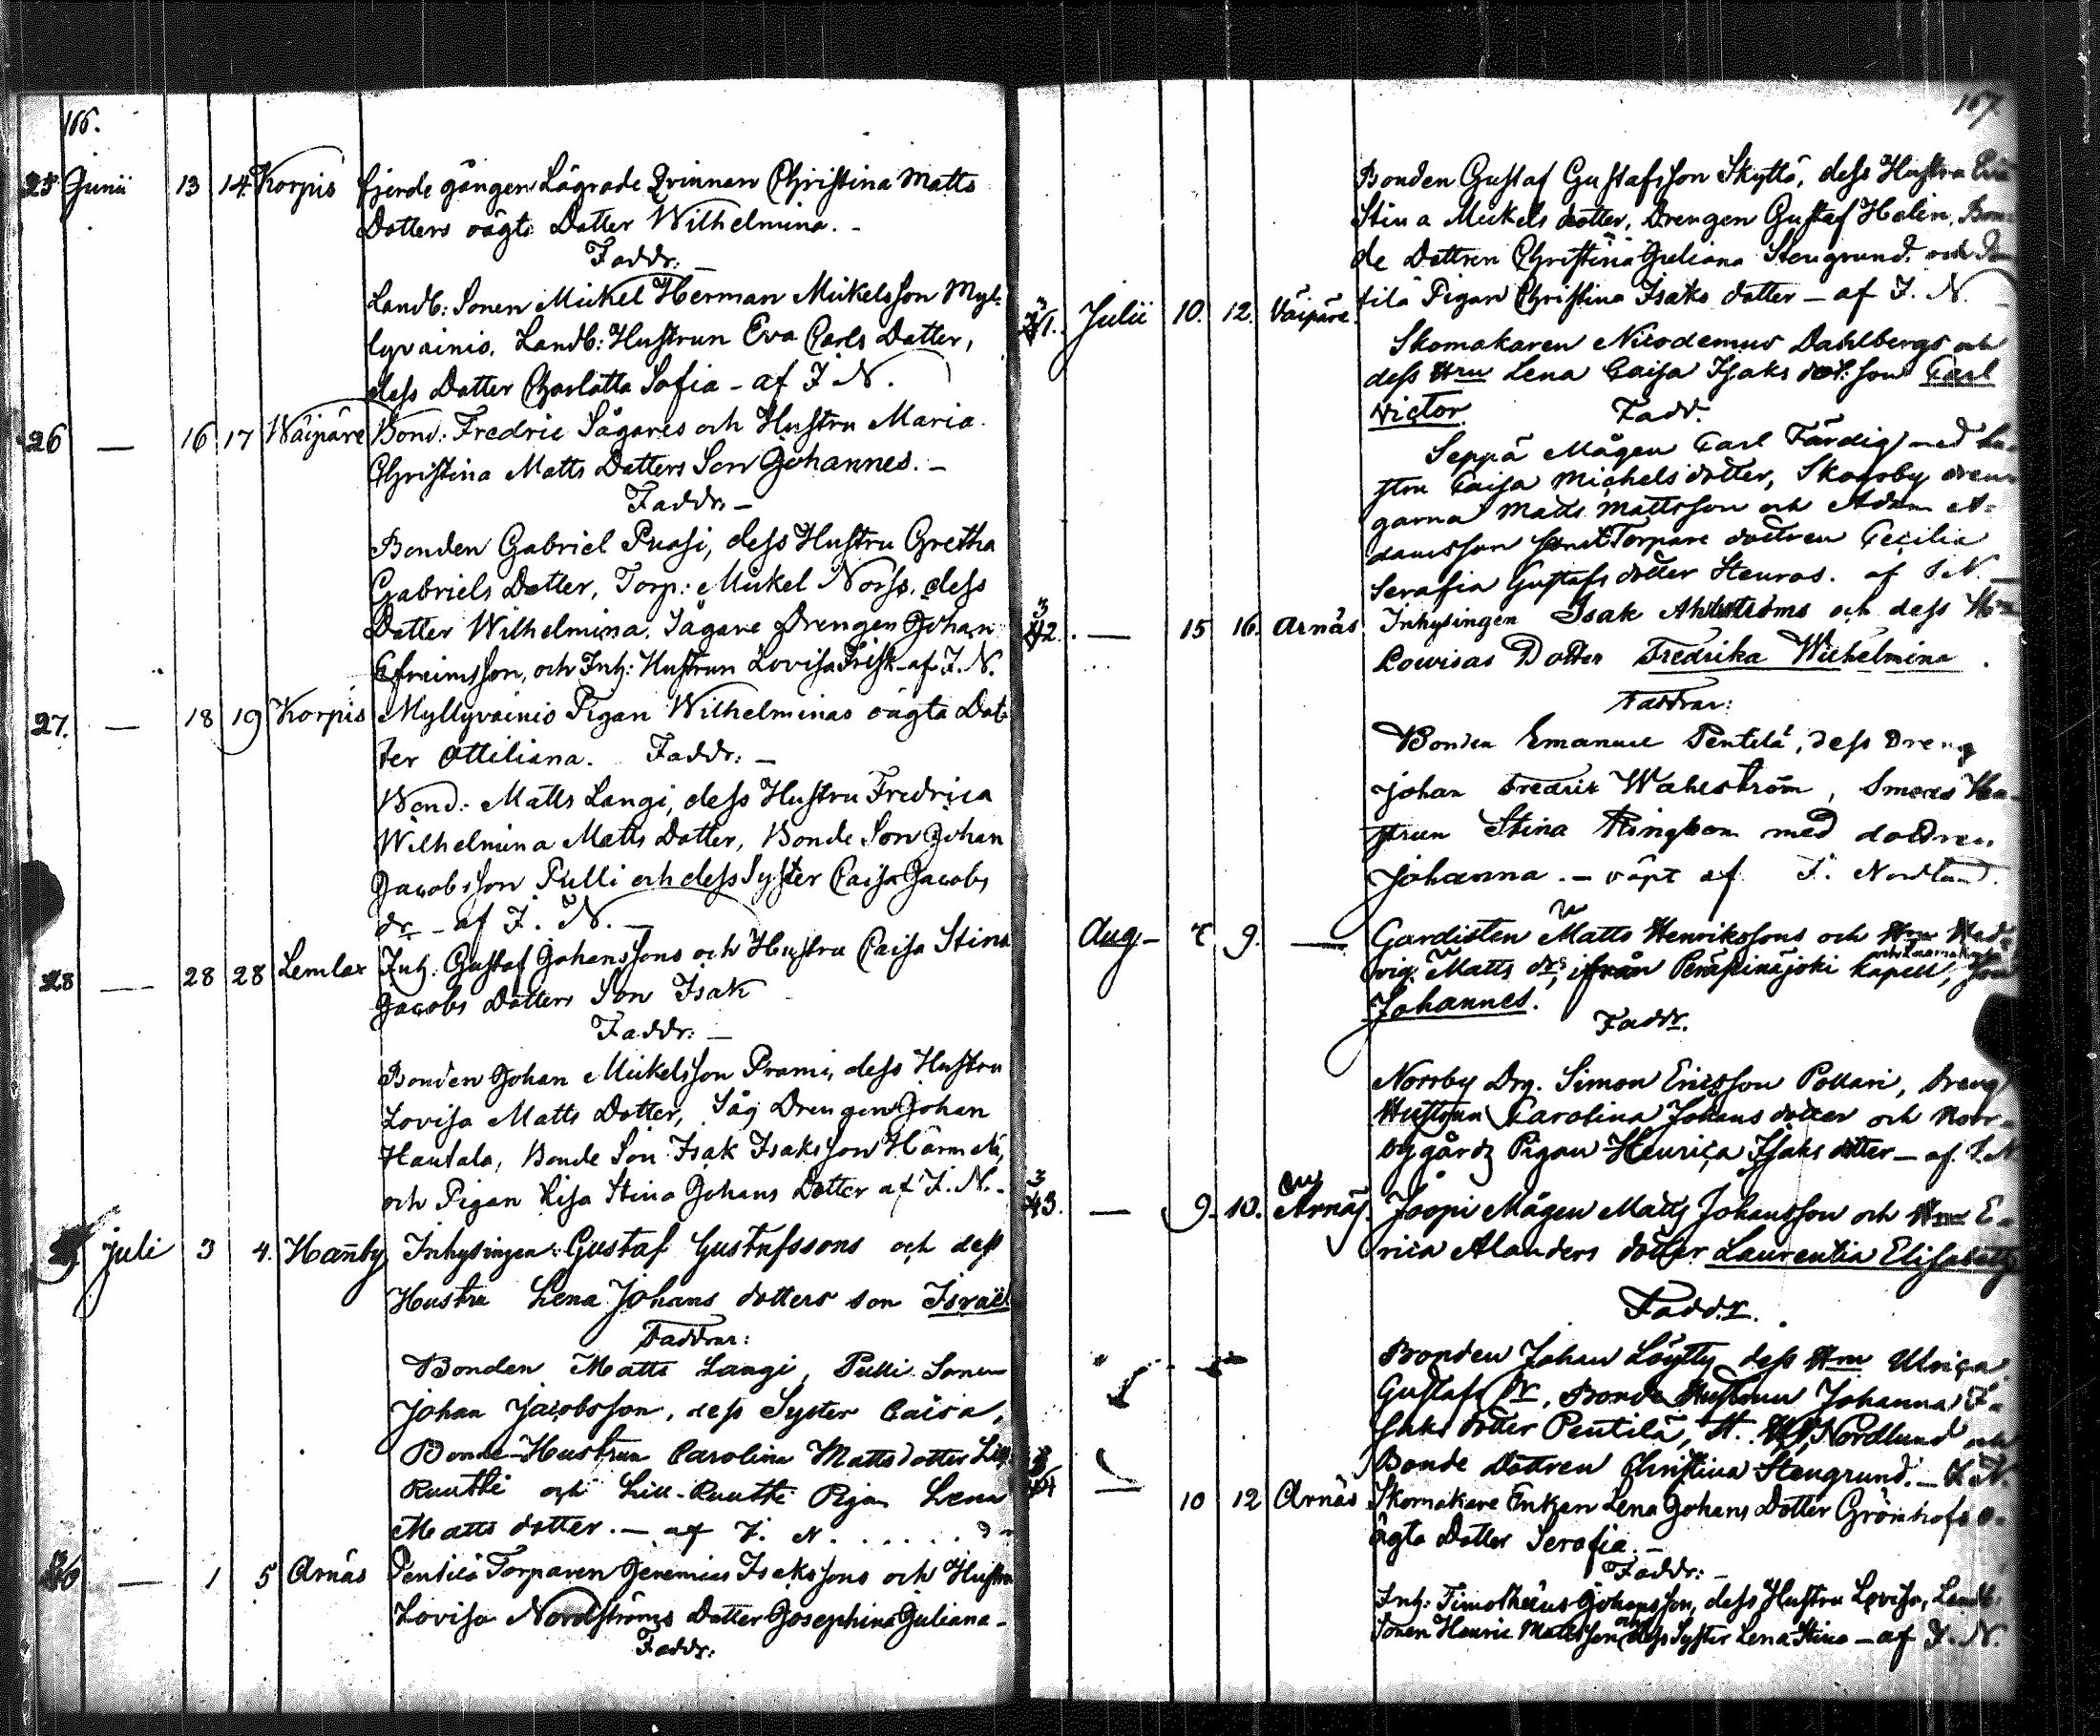 166.
25 Junii 13 14 Korpis fjerde gången Lägrade Qvinnan Christina Matts
Dotters oägta Dotter Wilhelmina. -
Faddr: -
Landb: Sonen Mickel Herman Mickelsson Myl-
lyvainio, Landb: Hustrun Eva Carls Dotter,
dess Dotter Charlotta Sofia - af J. N.
26 — 16 17 Wäipäre Bond: Fredric Sågares och Hustru Maria
Christina Matts Dotters Son Johannes. -
Faddr. -
Bonden Gabriel Puasi, dess Hustru Gretha
Gabriels Dotter, Torp: Mickel Norss, dess
Dotter Wilhelmina, Sågare Drengen Johan
Efreimsson, och Inh: Hustrun Lovisa Frisk - af J. N.
27. — 18 19 Korpis Myllyvainio Pigan Wilhelminas oägta Dot-
ter Ottiliana. Faddr: -
Bond: Matts Langi, dess Hustru Fredrica
Wilhelmina Matts Dotter, Bonde Son Johan
Jacobsson Pulli och dess Syster Caisa Jacobs
dr - af J. N. -
28 — 28 28 Lemlax Inh: Gustaf Johanssons och Hustru Caisa Stina
Jacobs Dotters Son Isak
Faddr: -
Bonden Johan Mickelsson Prami, dess Hustru
Lovisa Matts Dotter, Såg Drengen Johan
Hautala, Bonde Son Isak Isaksson Härmelä,
och Pigan Lisa Stina Johans Dotter af J. N. -
Juli 3 4. Hanby Inhysingen Gustaf Gustafssons och dess
Hustru Lena Johans dotters son Israël
Faddrar:
Bonden Matts Langi, Pulli Sonen
Johan Jacobsson, dess Syster Caisa,
Bonde-Hustrun Carolina Matts dotter
Ruutti och Lill-Ruutti Pigan Lena
Matts dotter. - af J. N.
— 1 5 Arnäs Pentilä Torparen Jeremias Isakssons och Hustru
Lovisa Nordströms Dotter Josephina Juliana -
Faddr:
167.
Bonden Gustaf Gustafsson Skyttä, dess Hustru Eva
Stina Mickels dotter, Drengen Gustaf Holin, Bon-
de Dottren Christina Juliana Stengrund och
tilä Pigan Christina Isaks dotter - af J. N. -
31. Julii 10. 12. Väipäre.
Skomakaren Nicodemus Dahlbergs och
dess Hru Lena Caisa Isaks dot: son Carl
Victor. Fadd.
Seppä Mågen Carl Färdig med Hu-
stru Caisa Michels dotter, Skogsby dren-
garna Mats Mattsson och Adam A-
damsson samt Torpare dottren Cecilia
Serafia Gustafs dotter Stenros. af J. N. -
32. — 15 16. Arnäs Inhysingen Isak Ahlströms och dess Hru
Lovisas Dotter Fredrika Wilhelmina.
Faddrar:
Bonden Emanuel Pentilä, dess Dreng
Johan Fredrik Wahlström, Smeds Hu-
strun Stina Ringbom med dottren
Johanna. - döpt af J. Nordlund.
Aug. - 9. — Gardisten Matts Henrikssons och Hru Hed-
vig Matts drs, ifrån Peräseinäjoki Kapell, son
Johannes.
Faddr.
Norrby Drg. Simon Ericsson Pollari, Dreng
Hustrun Carolina Johans dotter och Norr-
bygårds Pigan Henrica Isaks dotter - af J. N.
33. — 9. 10. Arnäs. Jööpi Mågen Matts Johansson och Hru E-
rica Alanders dotter Laurentia Elisabeth
Faddr.
Bonden Johan Löytty dess Hru Ulrica
Gustafs Dr, Bonde Hustrun Johanna I-
saks dotter Pentilä, Nordlund och
Bonde dottren Christina Stengrund. - J. N.
34 — 10 12 Arnäs Skomakare Enkan Lena Johans Dotter Grönhofs o-
ägta Dotter Serafia. -
Faddr: -
Inh: Timothëus Johansson, dess Hustru Lovisa, Landb.
Sonen Henric Mattsson och dess Syster Lena Stina - af J. N.